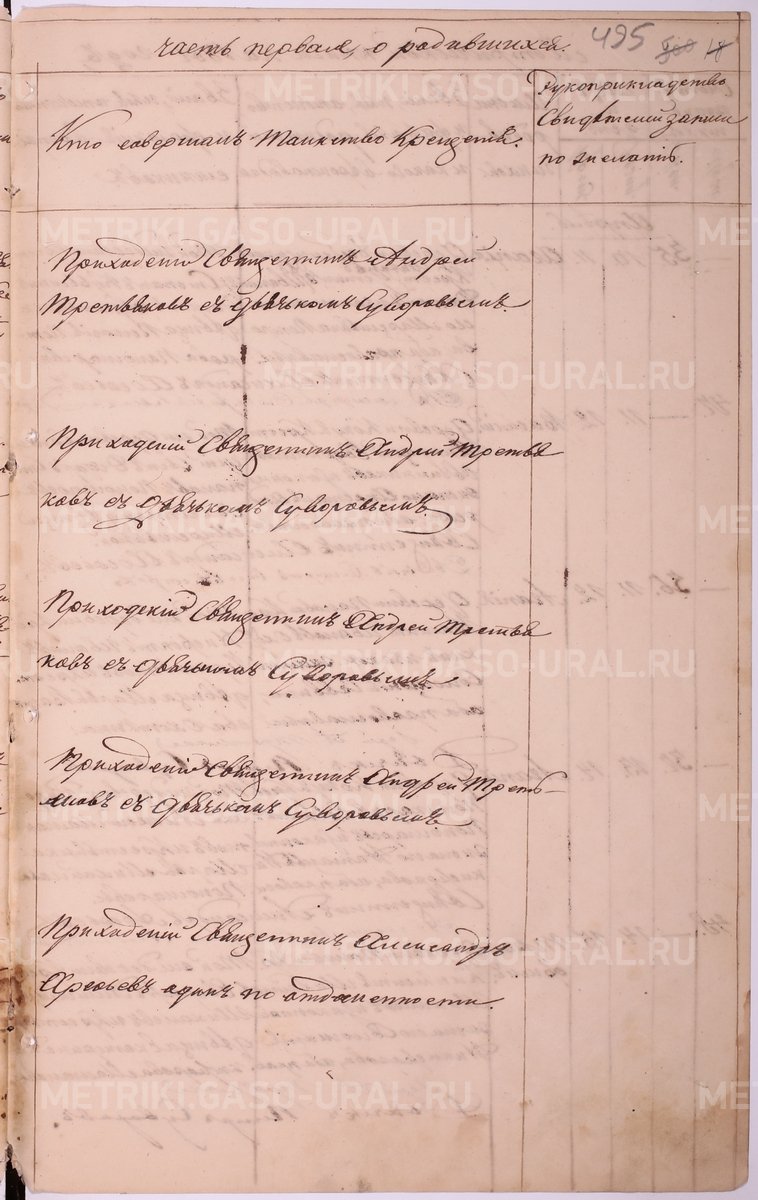 часть первая, о родившихся. 495
Кто совершалъ Таинство Крещенія.
Рукоприкладство
Свидѣтелей записи
по желанію.
Приходскій Священникъ Андрей
Третьяковъ съ дьячькомъ Суворовымъ.
Приходскій Священникъ Андрей Третья
ковъ съ дьячькомъ Суворовымъ.
Приходскій Священникъ Андрей Третья
ковъ съ дьячькомъ Суворовымъ
Приходскій Священникъ Андрей Треть-
яковъ съ дьячькомъ Суворовымъ.
Приходскій Священникъ Александръ
одинъ по отдаленности.
METRIKI.GASO-URAL.RU